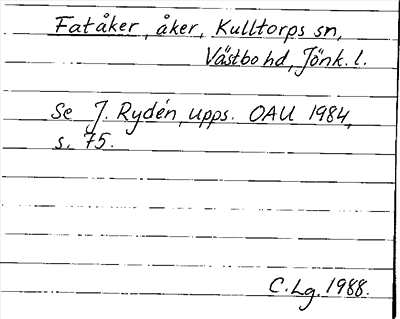 Fatåker, åker, Kulltorps sn,
Västbo hd, Jönk. l.
Se J. Rydén, upps. OAU 1984,
s. 75.
C. Lg. 1988.